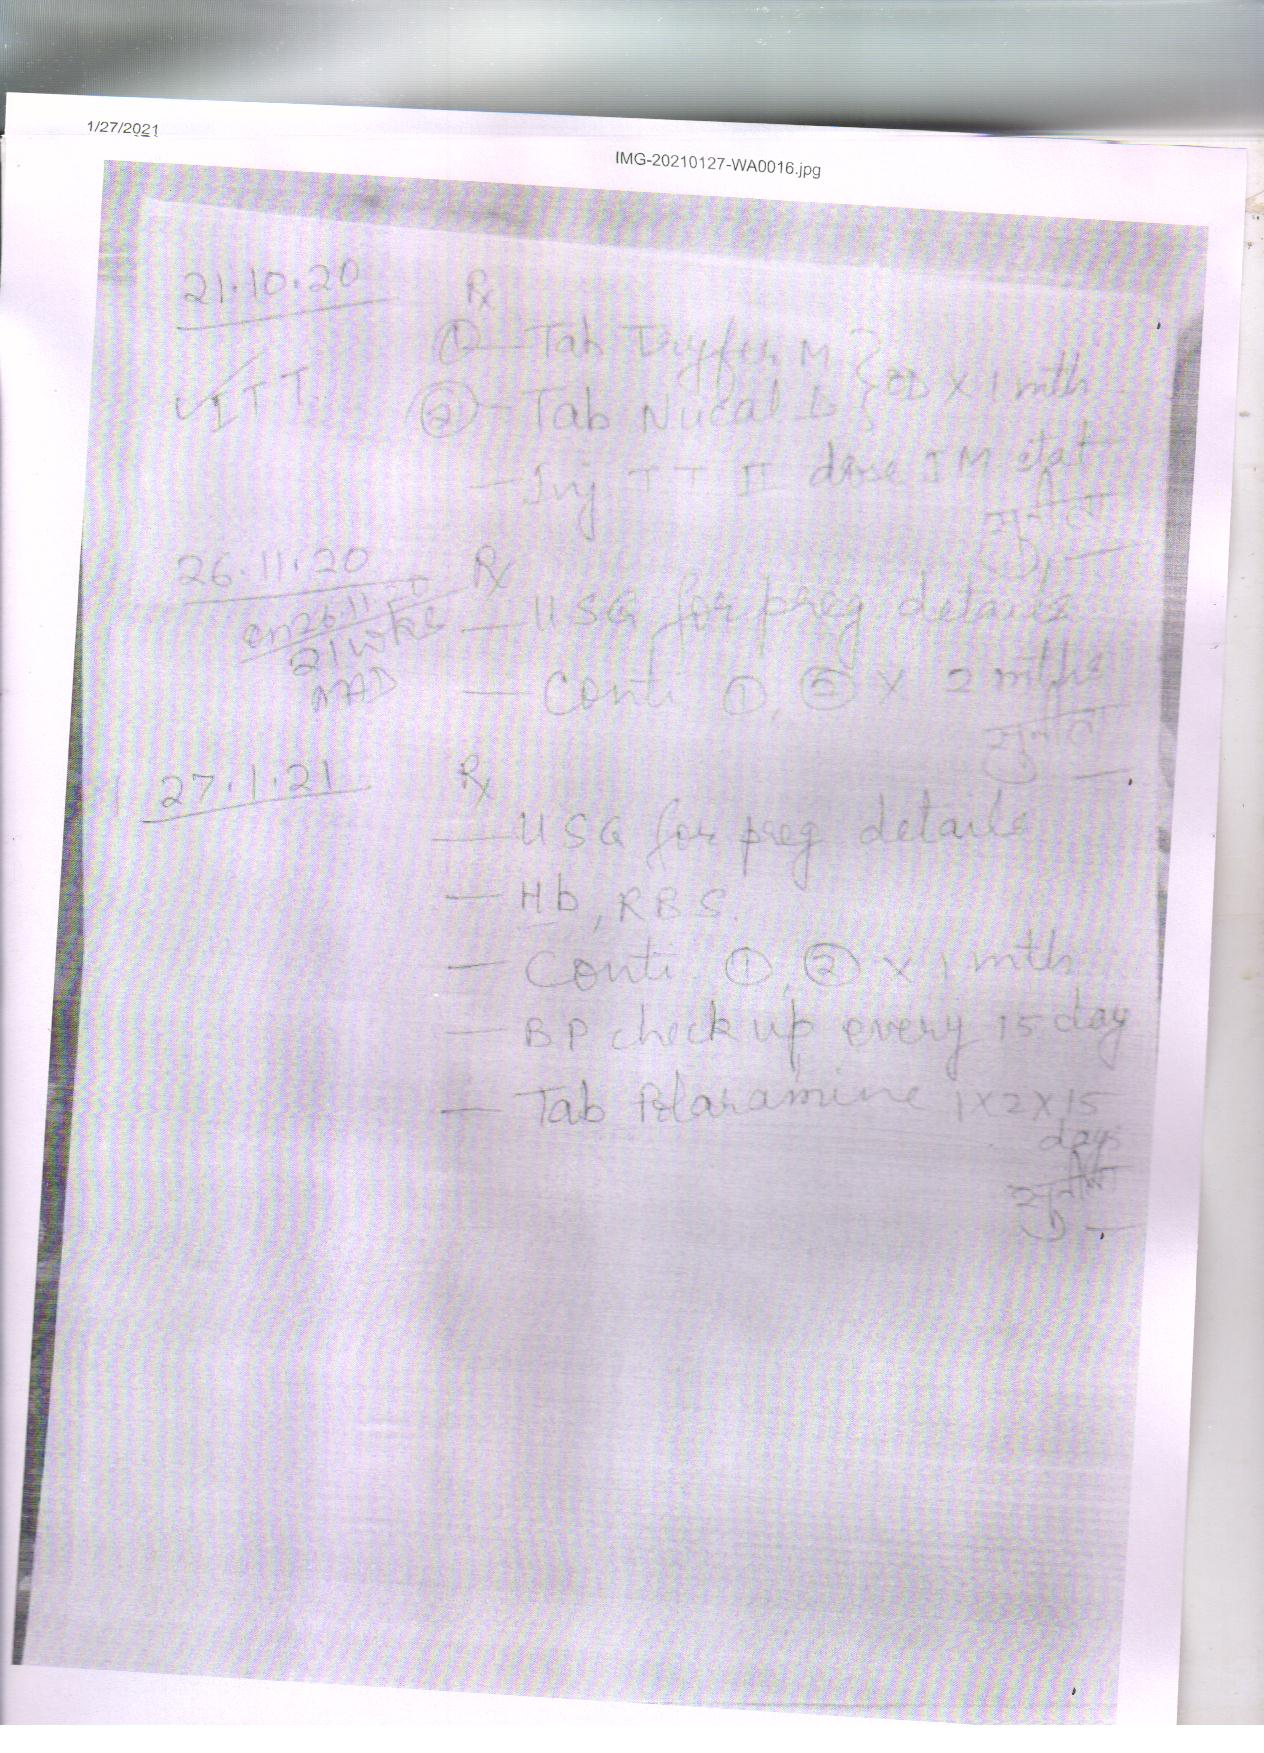 1/27/2021
IMG-20210127-WA0016.jpg
21.10.20
Rx
① — Tab Tryfer M } OD X 1 mth
✓ITT
② — Tab Nucal D
— Inj TT II dose IM stat
सुनीता
26.11.20
Rx
— USG for preg details
on 26.11
21 wks
NAD
— Conti ①, ② X 2 mths
सुनीता
27.1.21
Rx
— USG for preg details
— Hb, RBS.
— Conti ①, ② X 1 mth
— BP check up every 15 day
— Tab Polaramine 1X2X15
days
सुनीता